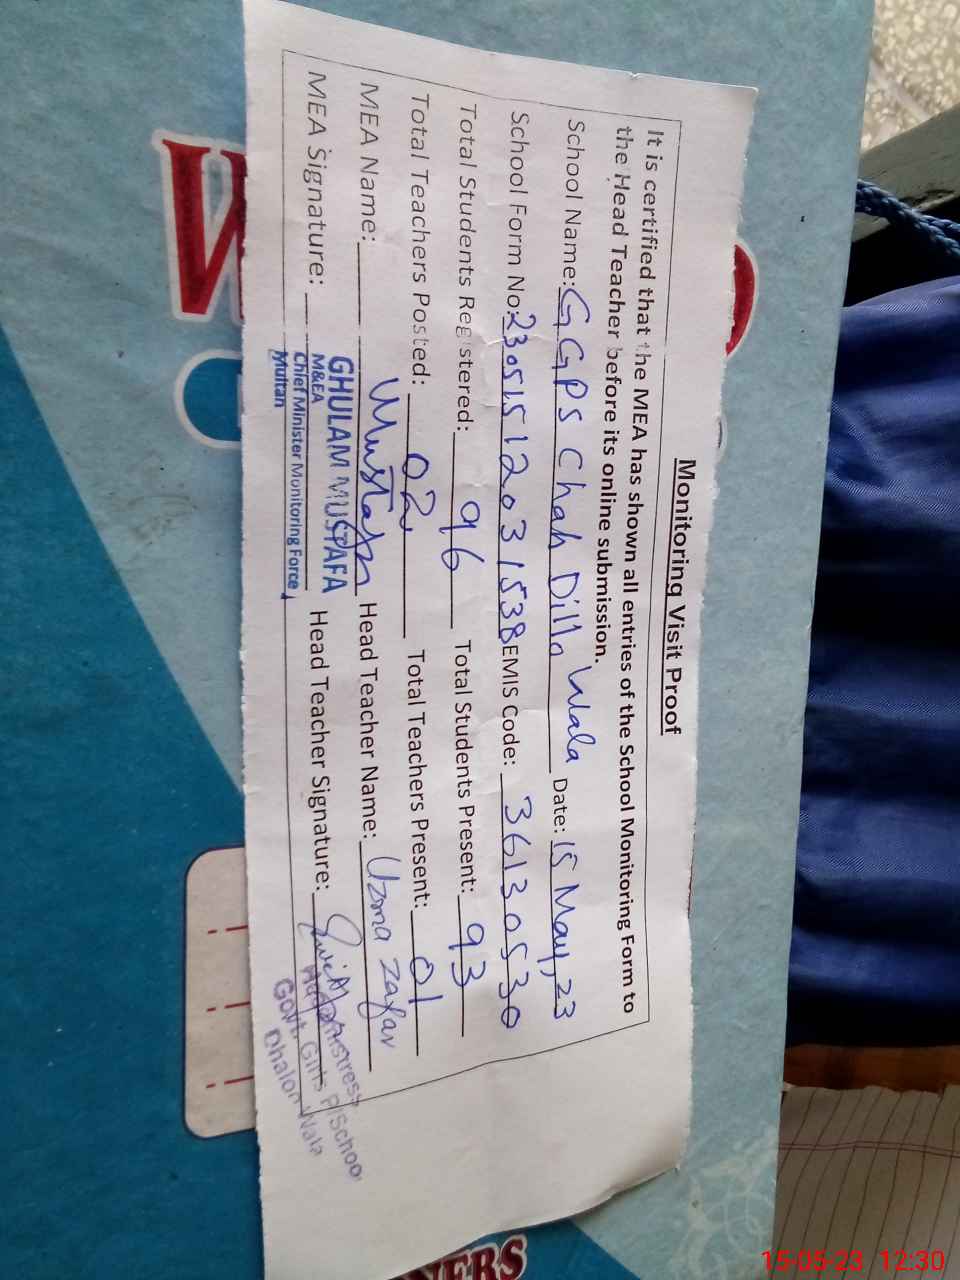 Monitoring Visit Proof
It is certified that the MEA has shown all entries of the School Monitoring Form to
the Head Teacher before its online submission.
School Name: GGPS Chah Dillo Wala Date: 15 May, 23
School Form No: 230515120315 38 EMIS Code: 36130530
Total Students Registered: 96 Total Students Present: 93
Total Teachers Posted: 02 Total Teachers Present: 01
MEA Name: Mustafa Head Teacher Name: Uzma Zafar
MEA Signature: Head Teacher Signature:
GHULAM MUSTAFA
M&EA
Chief Minister Monitoring Force
Multan
Headmistress
Govt. Girls P/School
Dhalon Wala
NERS
15-05-23 12:30